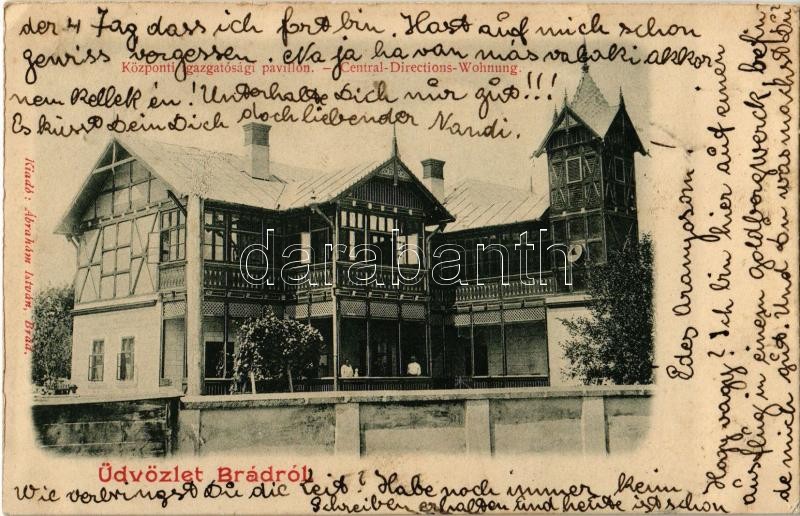 Edes Aranyosom.
Hogy vagy? Ich bin hier auf einen
ausflug in einem goldbergwerck, befin
de mich gut. Und du was machst Du?
Wie verbringst Du die Zeit? Habe noch immer keim
Schreiben erhalten und heute ist schon
der 4 Tag dass ich fort bin. Hast auf mich schon
gewiss vergessen. Na ja ha van más valaki akkor
nem kellek én! Unterhalte Dich nur gut!!!
Es küsst Dein Dich doch liebender Nandi.
Központi igazgatósági pavillon. — Central-Directions-Wohnung.
Kiadó: Ábrahám István, Brád.
darabanth
Üdvözlet Brádról!